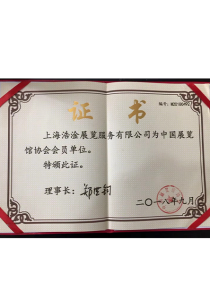 证 书
上海浩淦展览服务有限公司为中国展览
馆协会会员单位。
特颁此证。
理事长：
二〇一八年九月